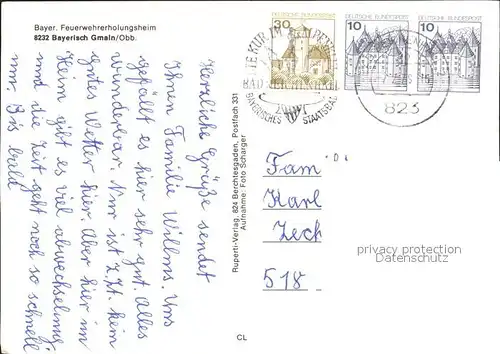 Bayer. Feuerwehrerholungsheim
8232 Bayerisch Gmain/Obb.
Herzliche Grüße sendet
Ihnen Familie Willms. Uns
gefällt es hier sehr gut. Alles
wunderbar. Nur ist z.Zt. kein
gutes Wetter hier. Aber hier im
Heim gibt es viel abwechselung
und die Zeit geht noch so schnell
um. Bis bald
Ruperti-Verlag, 824 Berchtesgaden, Postfach 331
Aufnahme: Foto Scharger
CL
DEUTSCHE BUNDESPOST
30
DEUTSCHE BUNDESPOST
10
DEUTSCHE BUNDESPOST
10
KUR IM ALPENKLIMA
BAD REICHENHALL
BAYERISCHES STAATSBAD
823
Fam
Karl
Zech
518
privacy protection
Datenschutz